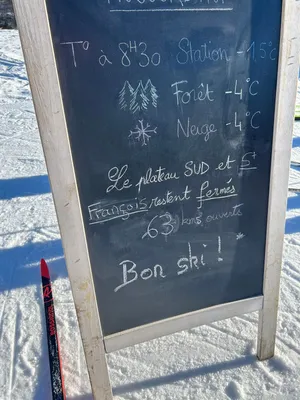 T° à 8H30 Station -15°C
Forêt -4°C
Neige -4°C
Le plateau SUD et St
François restent fermés
63 kms ouverts
Bon ski !